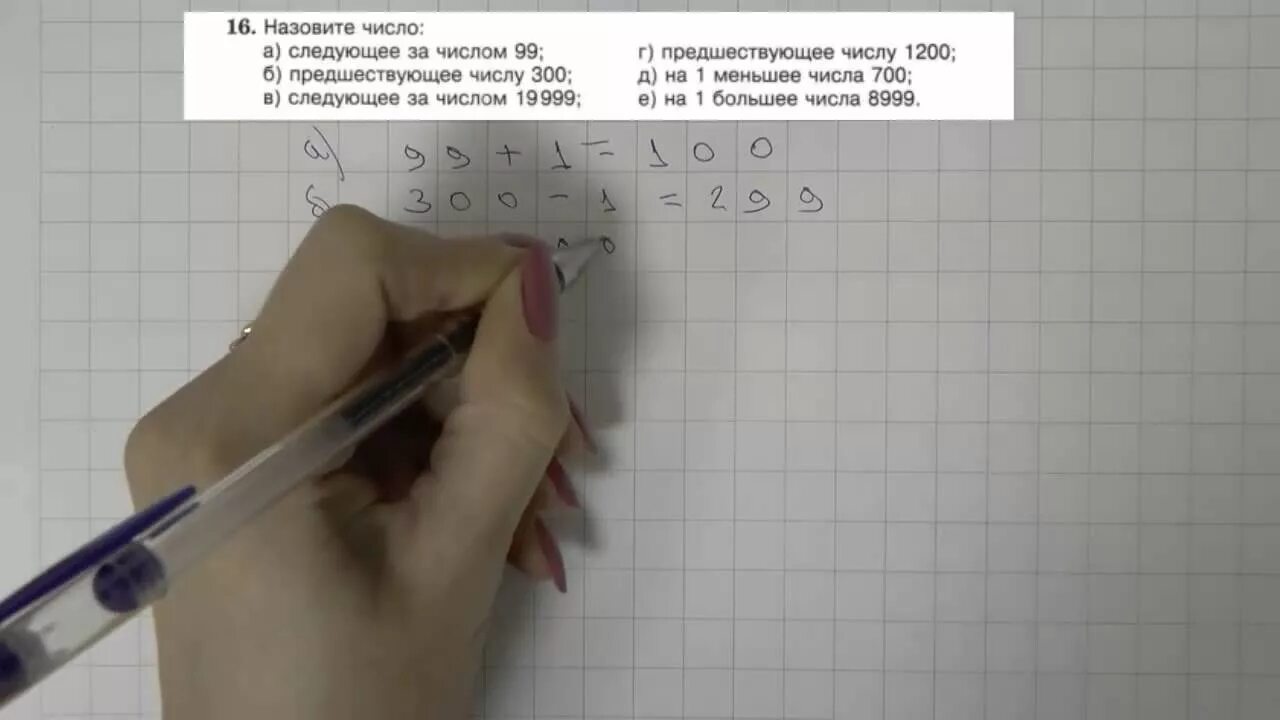 16. Назовите число:
а) следующее за числом 99;
б) предшествующее числу 300;
в) следующее за числом 19 999;
г) предшествующее числу 1200;
д) на 1 меньшее числа 700;
е) на 1 большее числа 8999.
а) 99 + 1 = 100
б 300 - 1 = 299